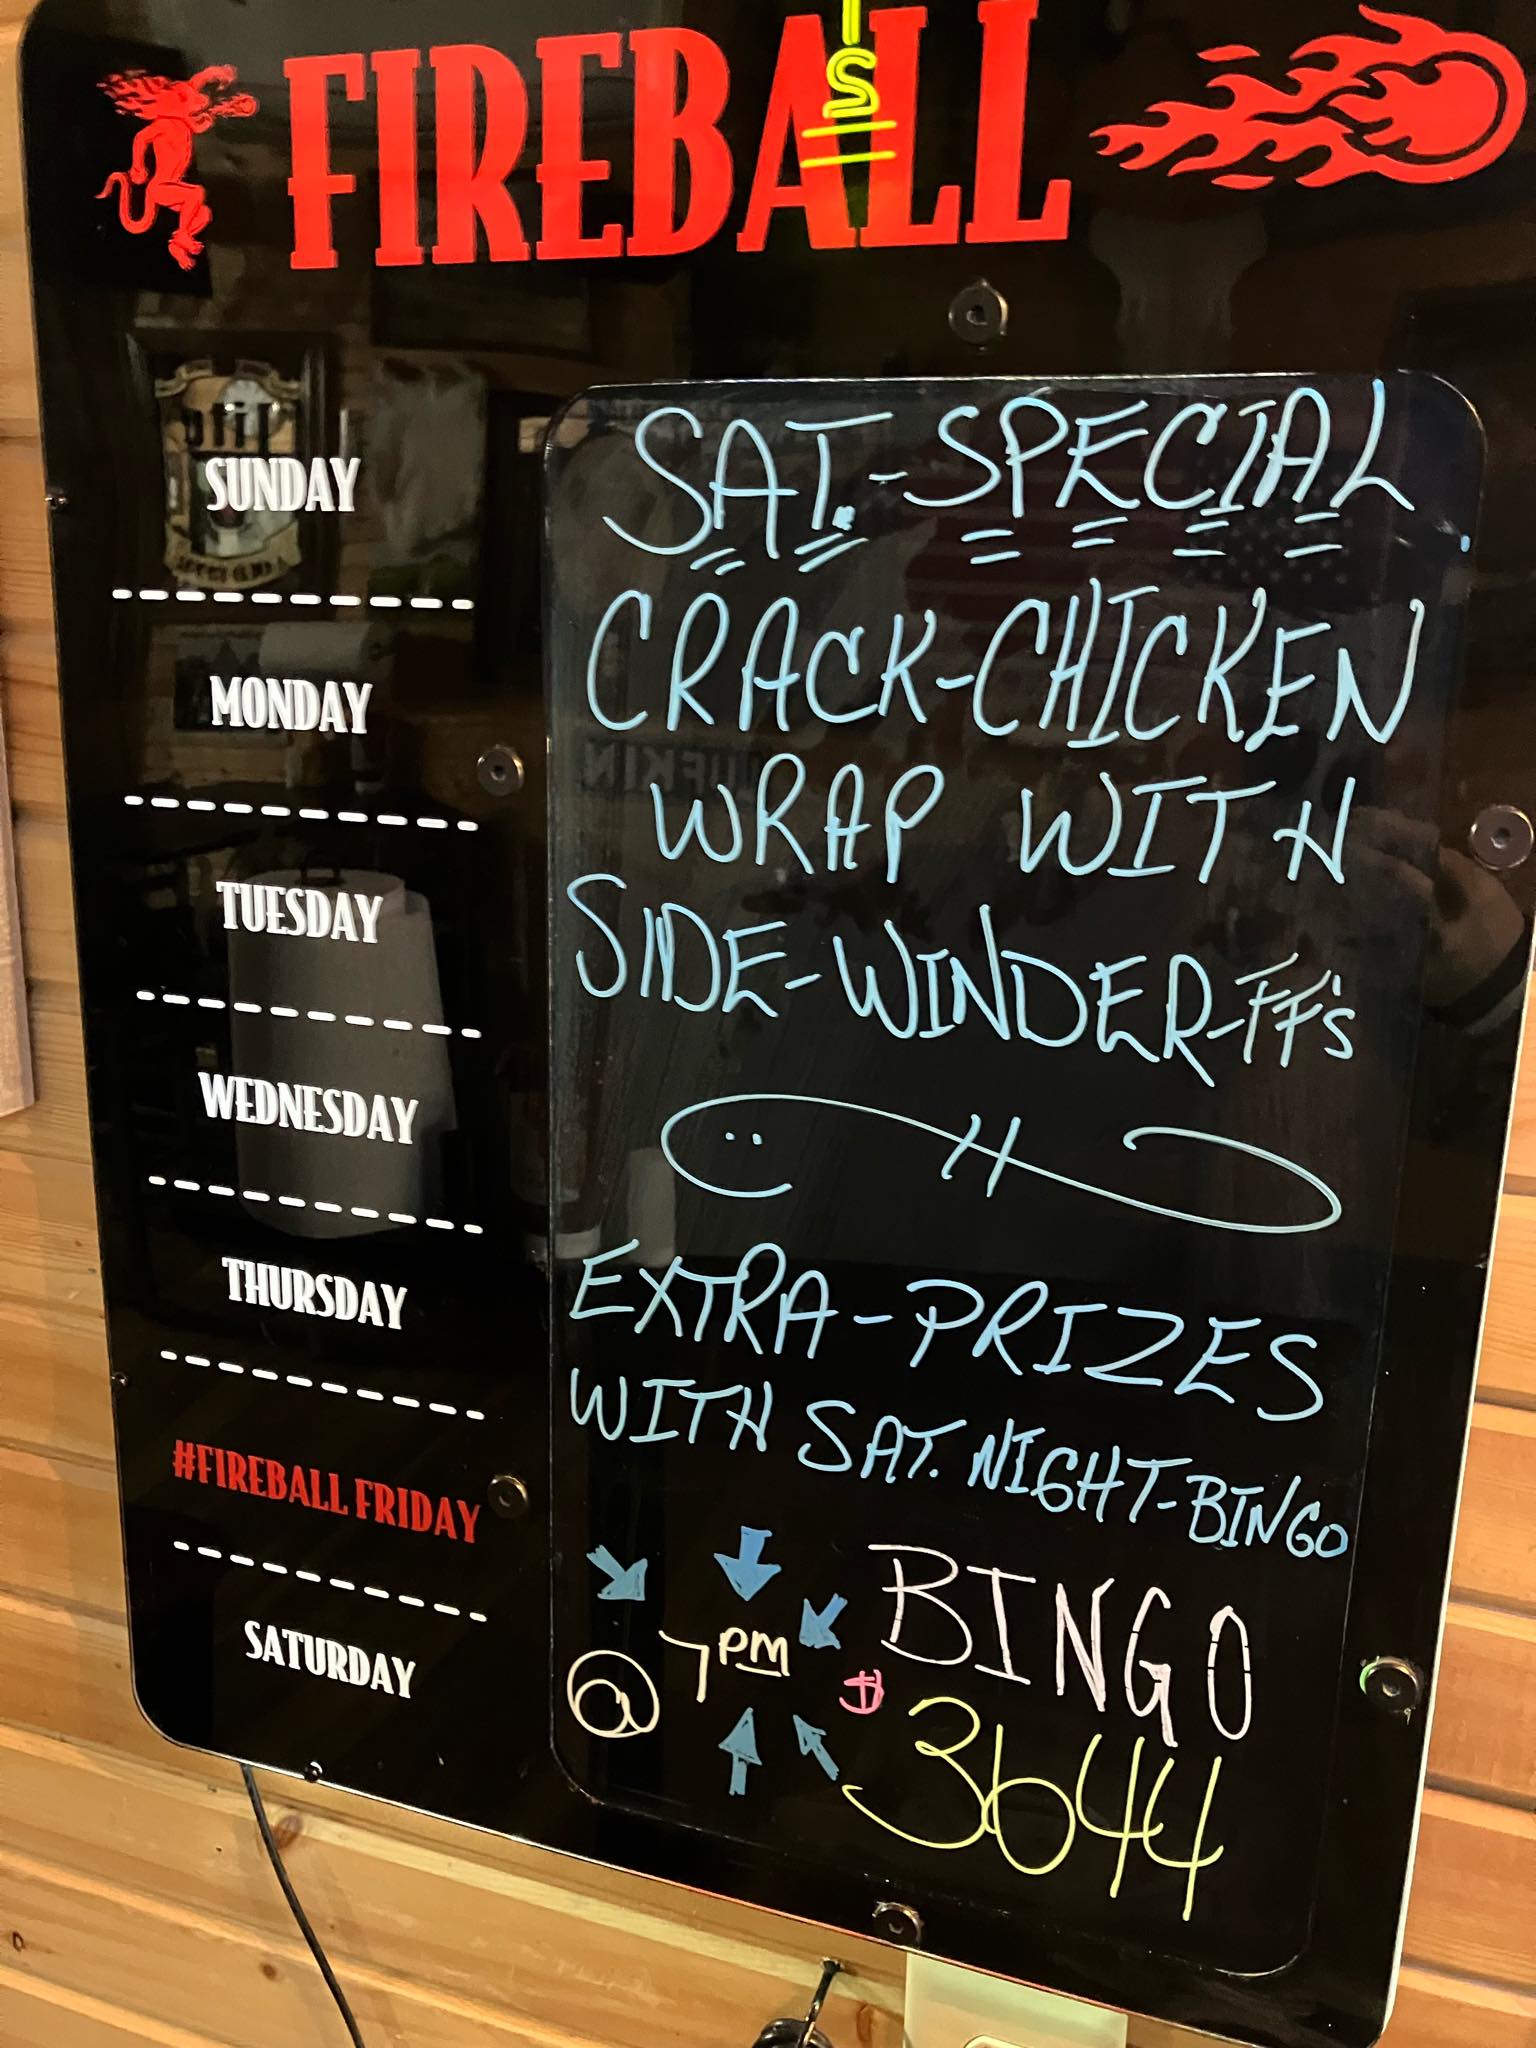 FIREBALL
IS
SUNDAY
MONDAY
TUESDAY
WEDNESDAY
THURSDAY
#FIREBALL FRIDAY
SATURDAY
SAT.-SPECIAL
CRACK-CHICKEN
WRAP WITH
SIDE-WINDER-FF's
EXTRA-PRIZES
WITH SAT. NIGHT-BINGO
@ 7PM
BINGO
$3644